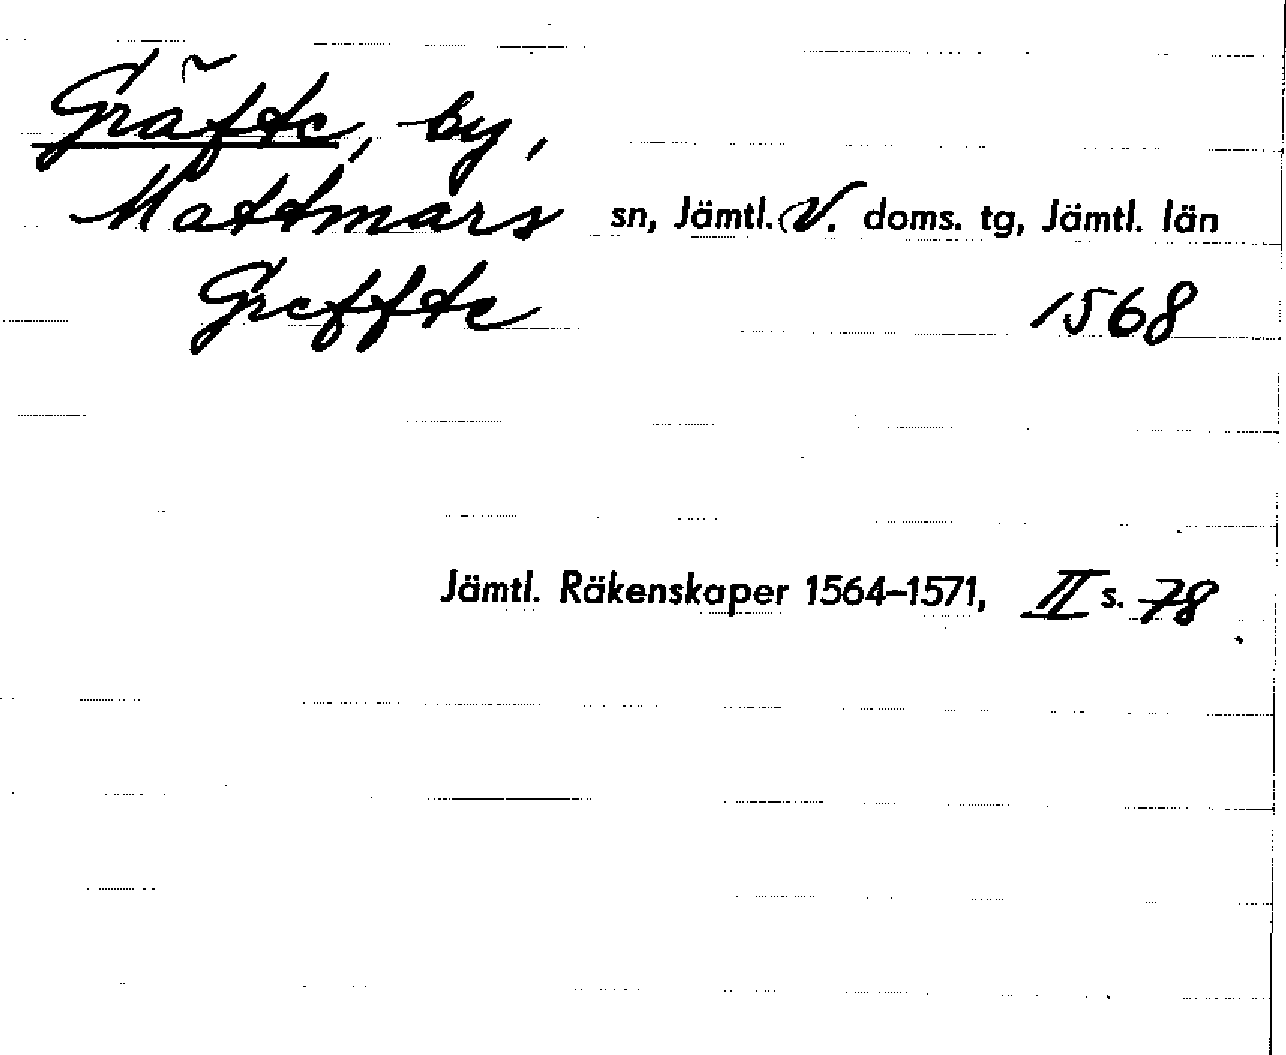 Gräfte, by,
Mattmars sn, Jämtl. V. doms. tg, Jämtl. län
Greffte 1568
Jämtl. Räkenskaper 1564–1571, II s. 78